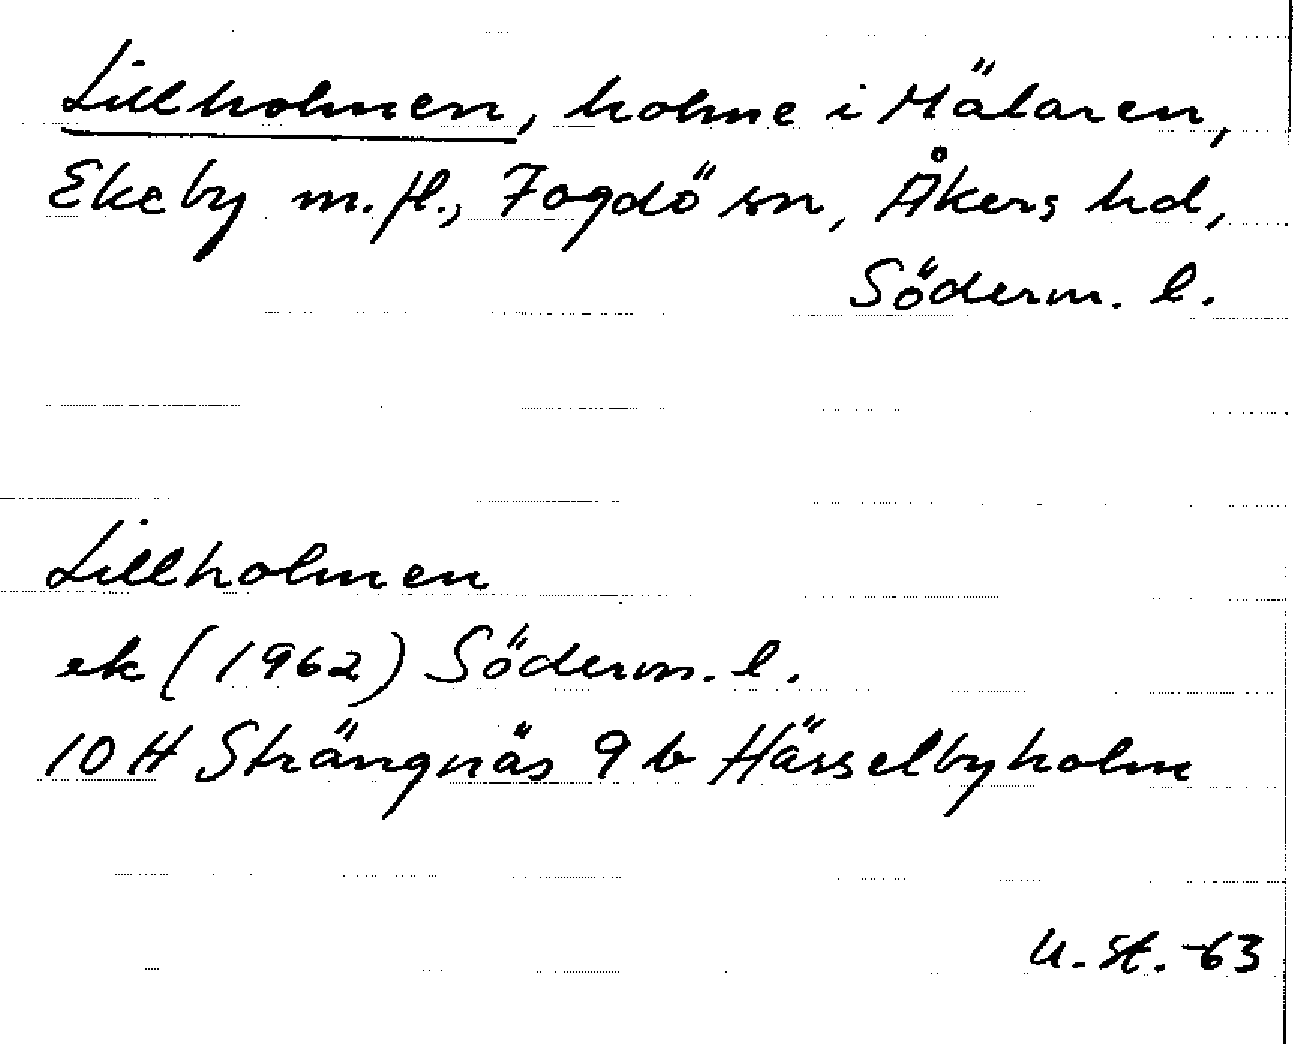 Lillholmen, holme i Mälaren,
Ekeby m.fl., Fogdö sn, Åkers hd,
Söderm. l.
Lillholmen
ek (1962) Söderm. l.
10 H Strängnäs 9 b Hässelbyholm
U. St. -63